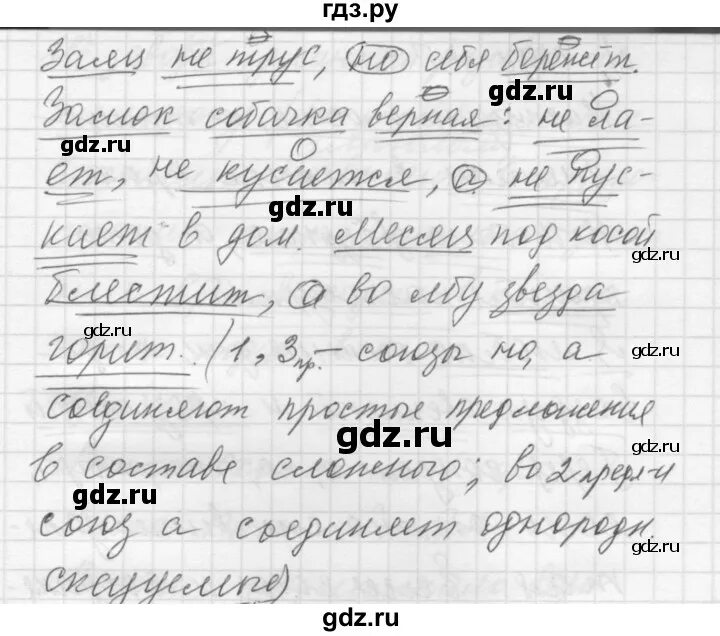 гдз.ру
Заяц не трус, но себя бережёт.
gdz.ru
Замок собачка верная: не ла-
gdz.ru
ет, не кусается, а не пус-
gdz.ru
кает в дом. Месяц под косой
gdz.ru
блестит, а во лбу звезда
gdz.ru
горит. (1, 3 пр. – союзы но, а
gdz.ru
соединяют простые предложения
gdz.ru
в составе сложного; во 2 предл-и
gdz.ru
союз а соединяет однородн.
gdz.ru
сказуемые)
gdz.ru